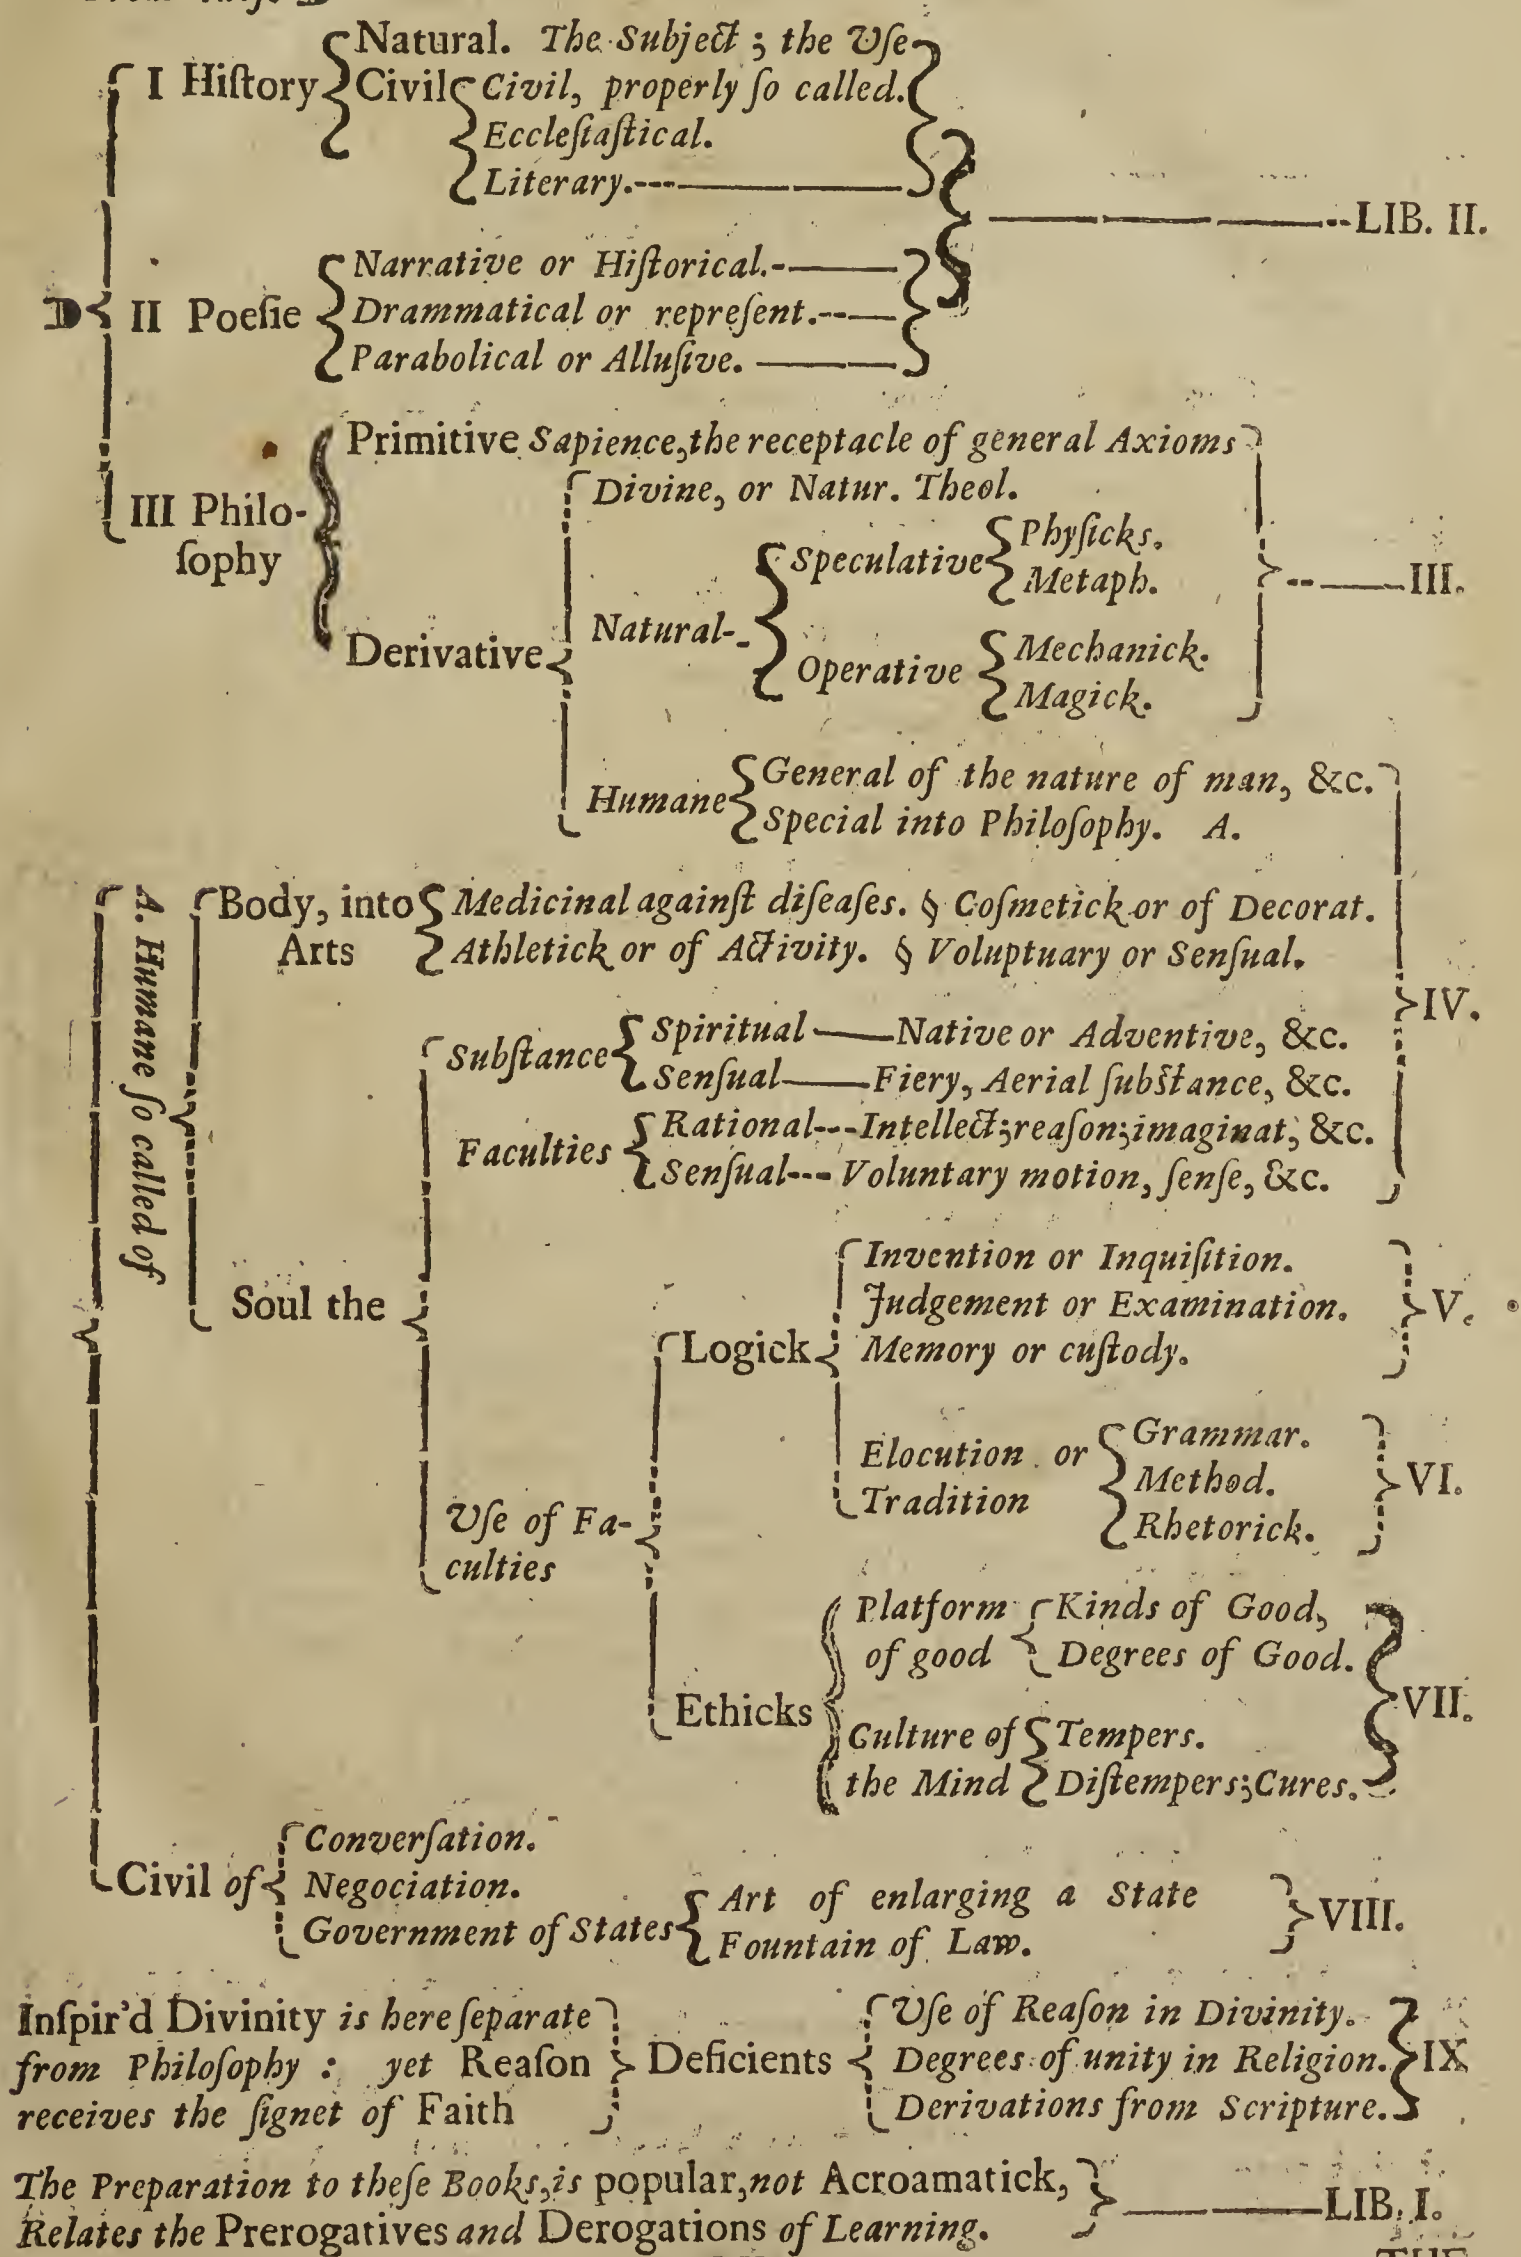 I Hiſtory
Natural. The Subject ; the Vſe
Civil
Civil, properly ſo called.
Eccleſiaſtical.
Literary.
LIB. II.
D
II Poeſie
Narrative or Hiſtorical.
Drammatical or repreſent.
Parabolical or Alluſive.
III Philo-
ſophy
Primitive Sapience, the receptacle of general Axioms
Derivative
Divine, or Natur. Theol.
Natural
Speculative
Phyſicks.
Metaph.
Operative
Mechanick.
Magick.
III.
Humane
General of the nature of man, &c.
Special into Philoſophy. A.
A. Humane ſo called of
Body, into
Arts
Medicinal againſt diſeaſes. § Coſmetick or of Decorat.
Athletick or of Activity. § Voluptuary or Senſual.
IV.
Soul the
Subſtance
Spiritual — Native or Adventive, &c.
Senſual — Fiery, Aerial ſubſtance, &c.
Faculties
Rational --- Intellect; reaſon; imaginat, &c.
Senſual --- Voluntary motion, ſenſe, &c.
Vſe of Fa-
culties
Logick
Invention or Inquiſition.
Judgement or Examination.
Memory or cuſtody.
V.
Elocution or
Tradition
Grammar.
Method.
Rhetorick.
VI.
Ethicks
Platform
of good
Kinds of Good,
Degrees of Good.
Culture of
the Mind
Tempers.
Diſtempers; Cures.
VII.
Civil of
Converſation.
Negociation.
Government of States
Art of enlarging a State
Fountain of Law.
VIII.
Inſpir'd Divinity is here ſeparate
from Philoſophy : yet Reaſon
receives the ſignet of Faith
Deficients
Vſe of Reaſon in Divinity.
Degrees of unity in Religion.
Derivations from Scripture.
IX
The Preparation to theſe Books, is popular, not Acroamatick,
Relates the Prerogatives and Derogations of Learning.
LIB. I.